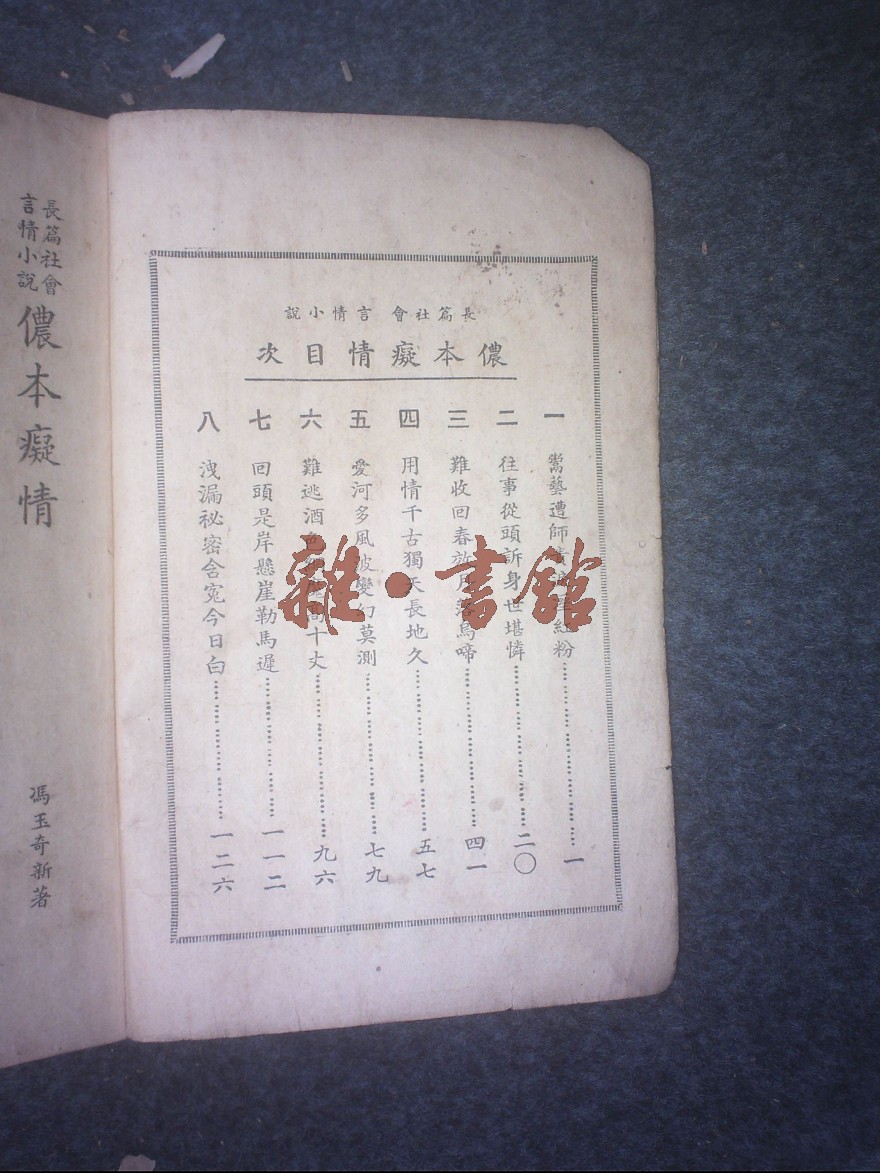 長篇社會 言情小說
儂本癡情目次
一 鬻藝遭師責淪紅粉 一
二 往事從頭訴身世堪憐 二〇
三 難收回春月落烏啼 四一
四 用情千古獨天長地久 五七
五 愛河多風波變幻莫測 七九
六 難逃酒色高十丈 九六
七 回頭是岸懸崖勒馬遲 一一二
八 洩漏祕密含寃今日白 一二六
雜·書館
長篇社會
言情小說
儂本癡情
馮玉奇新著